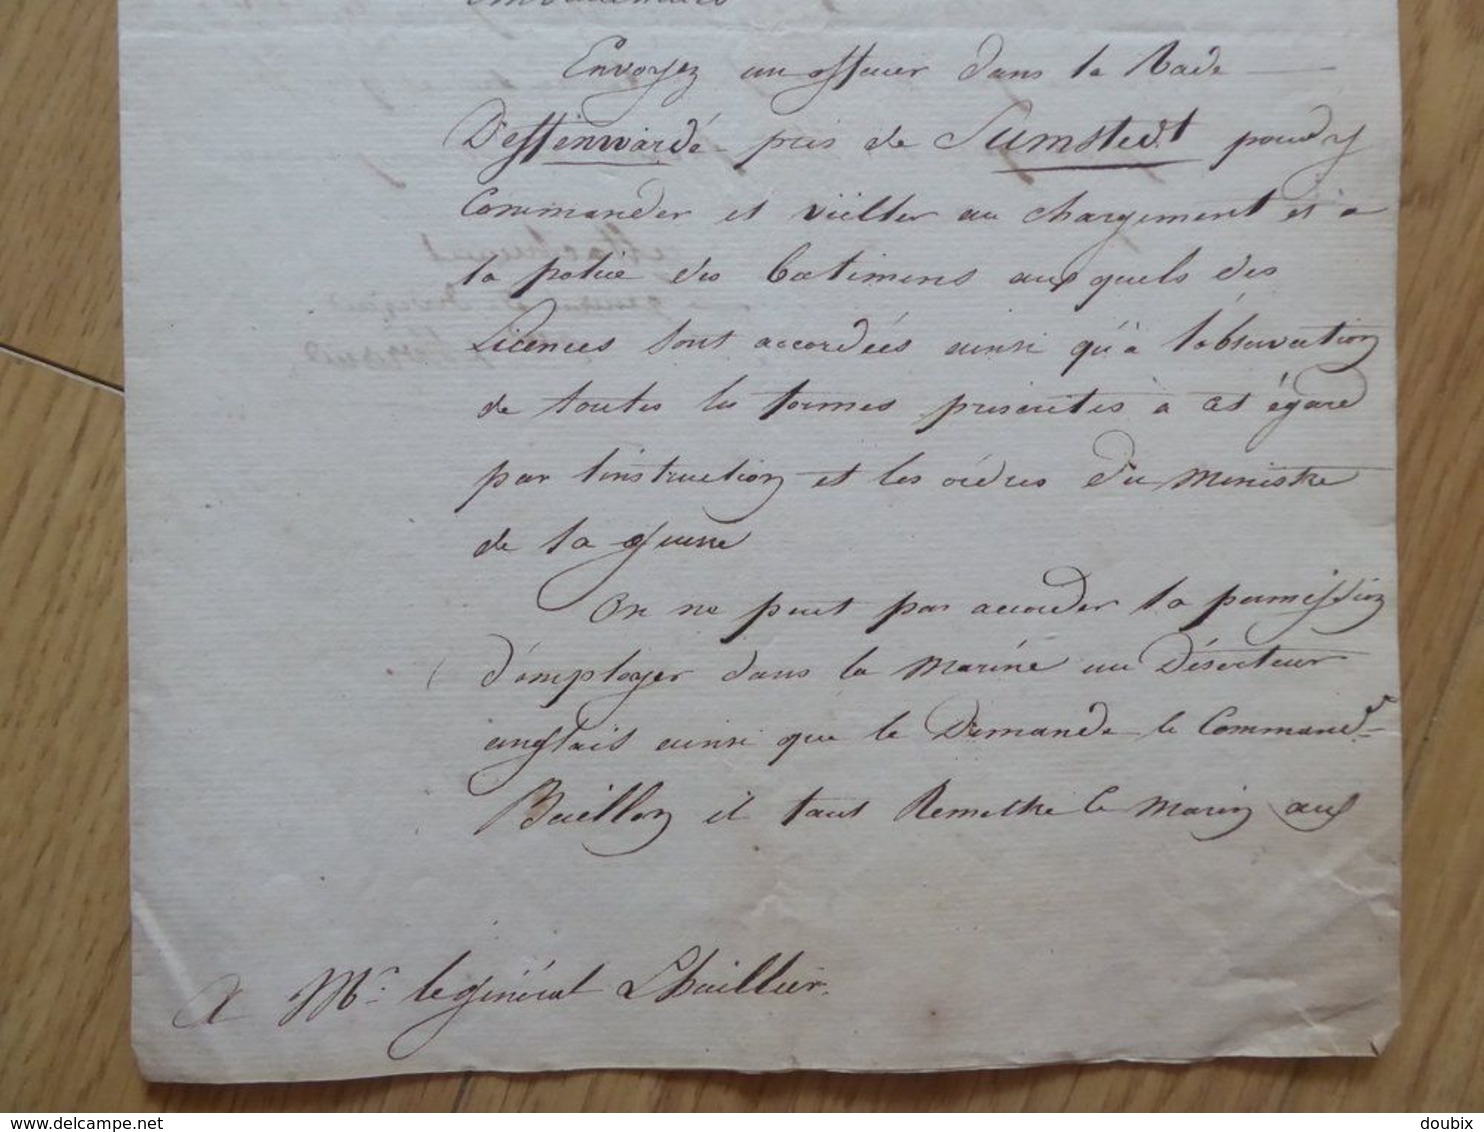 Envoyez un officier dans la Rade
D'essenwarde près de Sumstedt pour y
Commander et veiller au chargement et a
la police des batimens auxquels des
Licences sont accordées ainsi qu'à l'observation
de toutes les formes prescrites à cet égard
par l'instruction et les ordres du Ministre
de la guerre
On ne peut pas accorder la permission
d'employer dans la marine un Déserteur
anglais ainsi que le Demande le Command.t
Baillon il faut Remettre le marin aux
A Mr. le général Lhuillier.
doubix